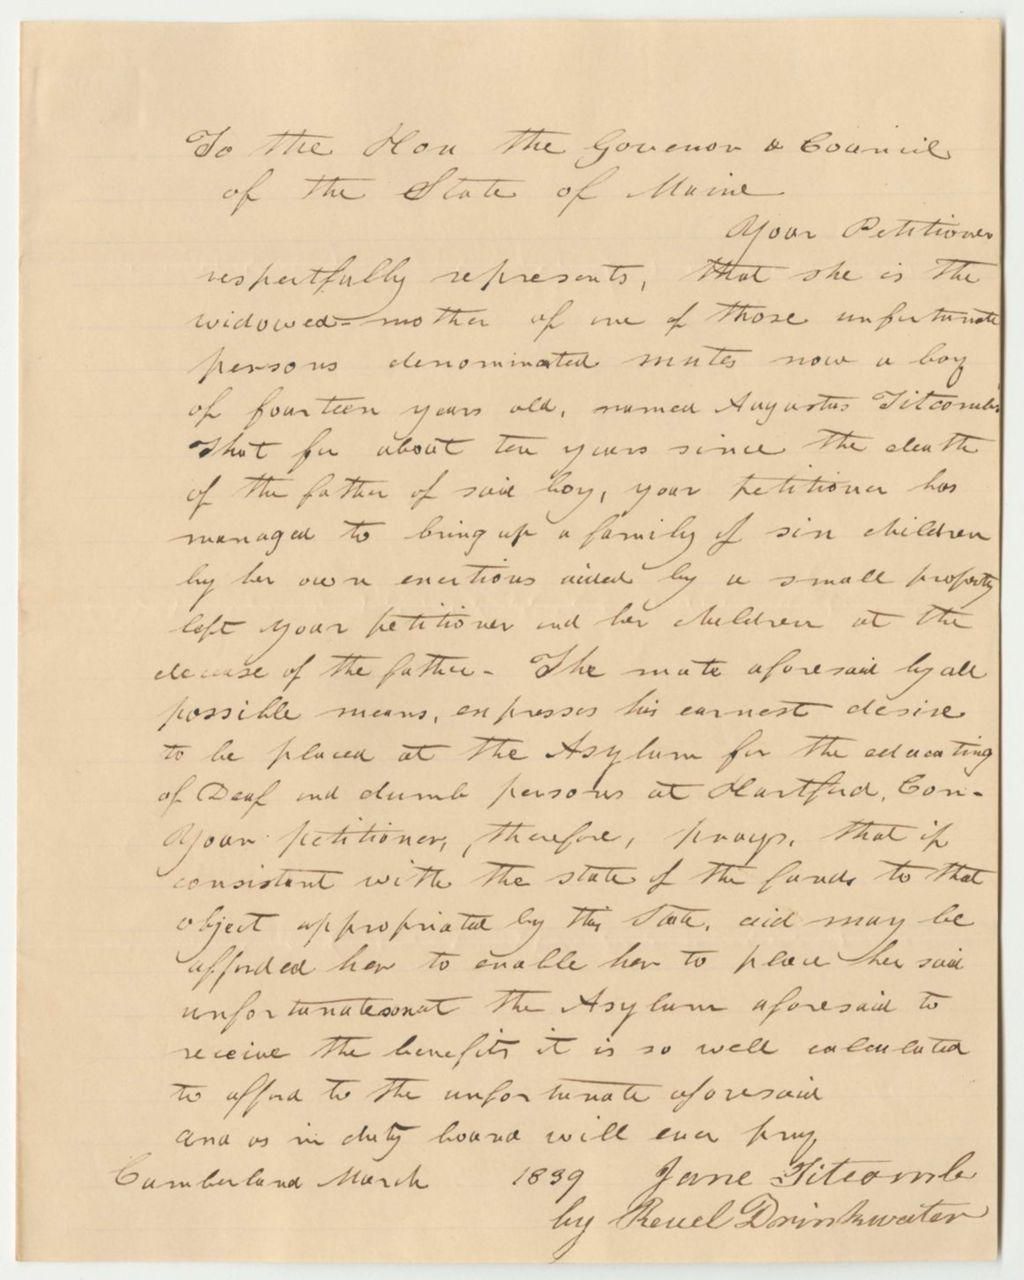 To the Hon the Govenor & Council
of the State of Maine
Your Petitioner
respectfully represents, that she is the
widowed mother of one of those unfortunate
persons denominated mutes now a boy
of fourteen years old, named Augustus Titcomb
That for about ten years since the death
of the father of said boy, your petitioner has
managed to bring up a family of six children
by her own exertions aided by a small property
left your petitioner and her children at the
decease of the father - The mute aforesaid by all
possible means, expresses his earnest desire
to be placed at the Asylum for the educating
of Deaf and dumb persons at Hartford, Con-
Your petitioner, therefore, prays, that if
consistent with the state of the funds to that
object appropriated by this State, aid may be
afforded her to enable her to place her said
unfortunate son at the Asylum aforesaid to
receive the benefits it is so well calculated
to afford to the unfortunate aforesaid
and as in duty bound will ever pray
Cumberland March 1839 Jane Titcomb
by Reuel Drinkwater